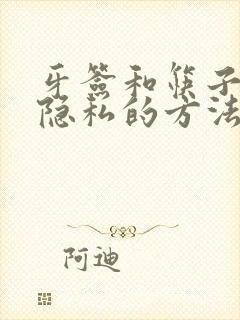 牙签和筷子
隐私的方法
阿迪